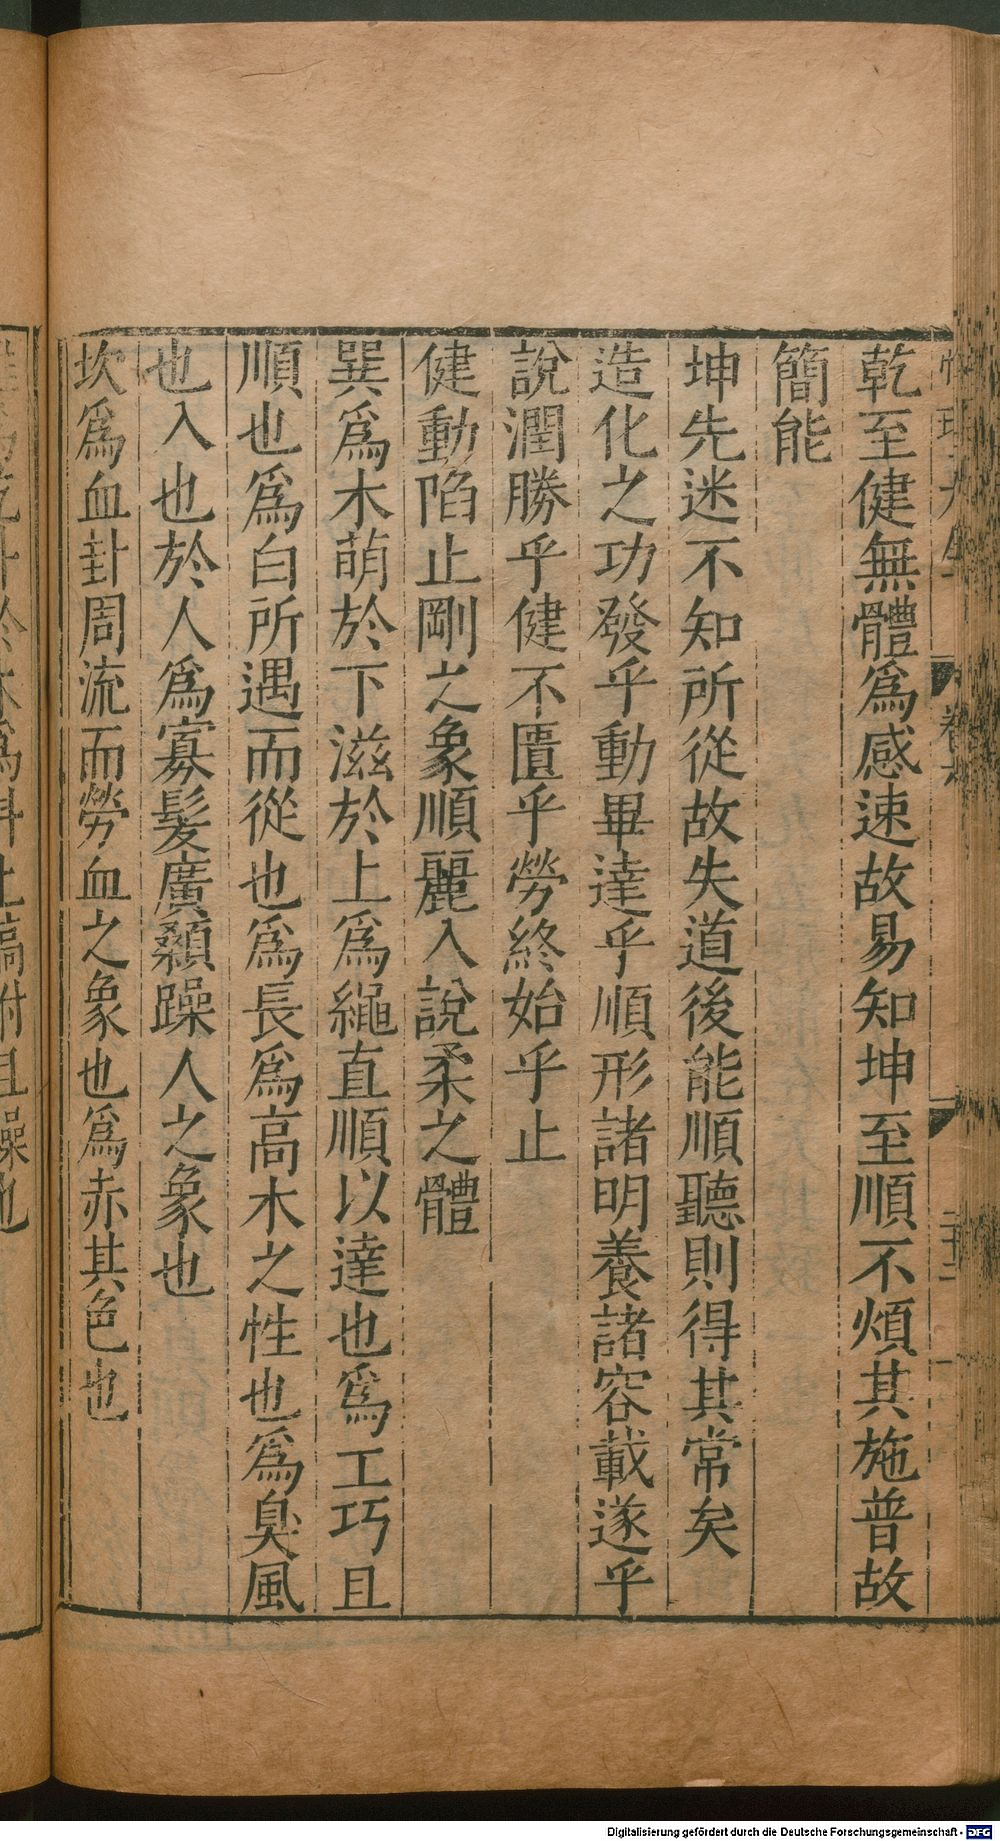 乾至健無體爲感速故易知坤至順不煩其施普故
簡能
坤先迷不知所從故失道後能順聽則得其常矣
造化之功發乎動畢達乎順形諸明養諸容載遂乎
說潤勝乎健不匱乎勞終始乎止
健動陷止剛之象順麗入說柔之體
巽爲木萌於下滋於上爲繩直順以達也爲工巧且
順也爲白所遇而從也爲長爲高木之性也爲臭風
也入也於人爲寡髮廣顙躁人之象也
坎爲血卦周流而勞血之象也爲赤其色也
Digitalisierung gefördert durch die Deutsche Forschungsgemeinschaft - DFG